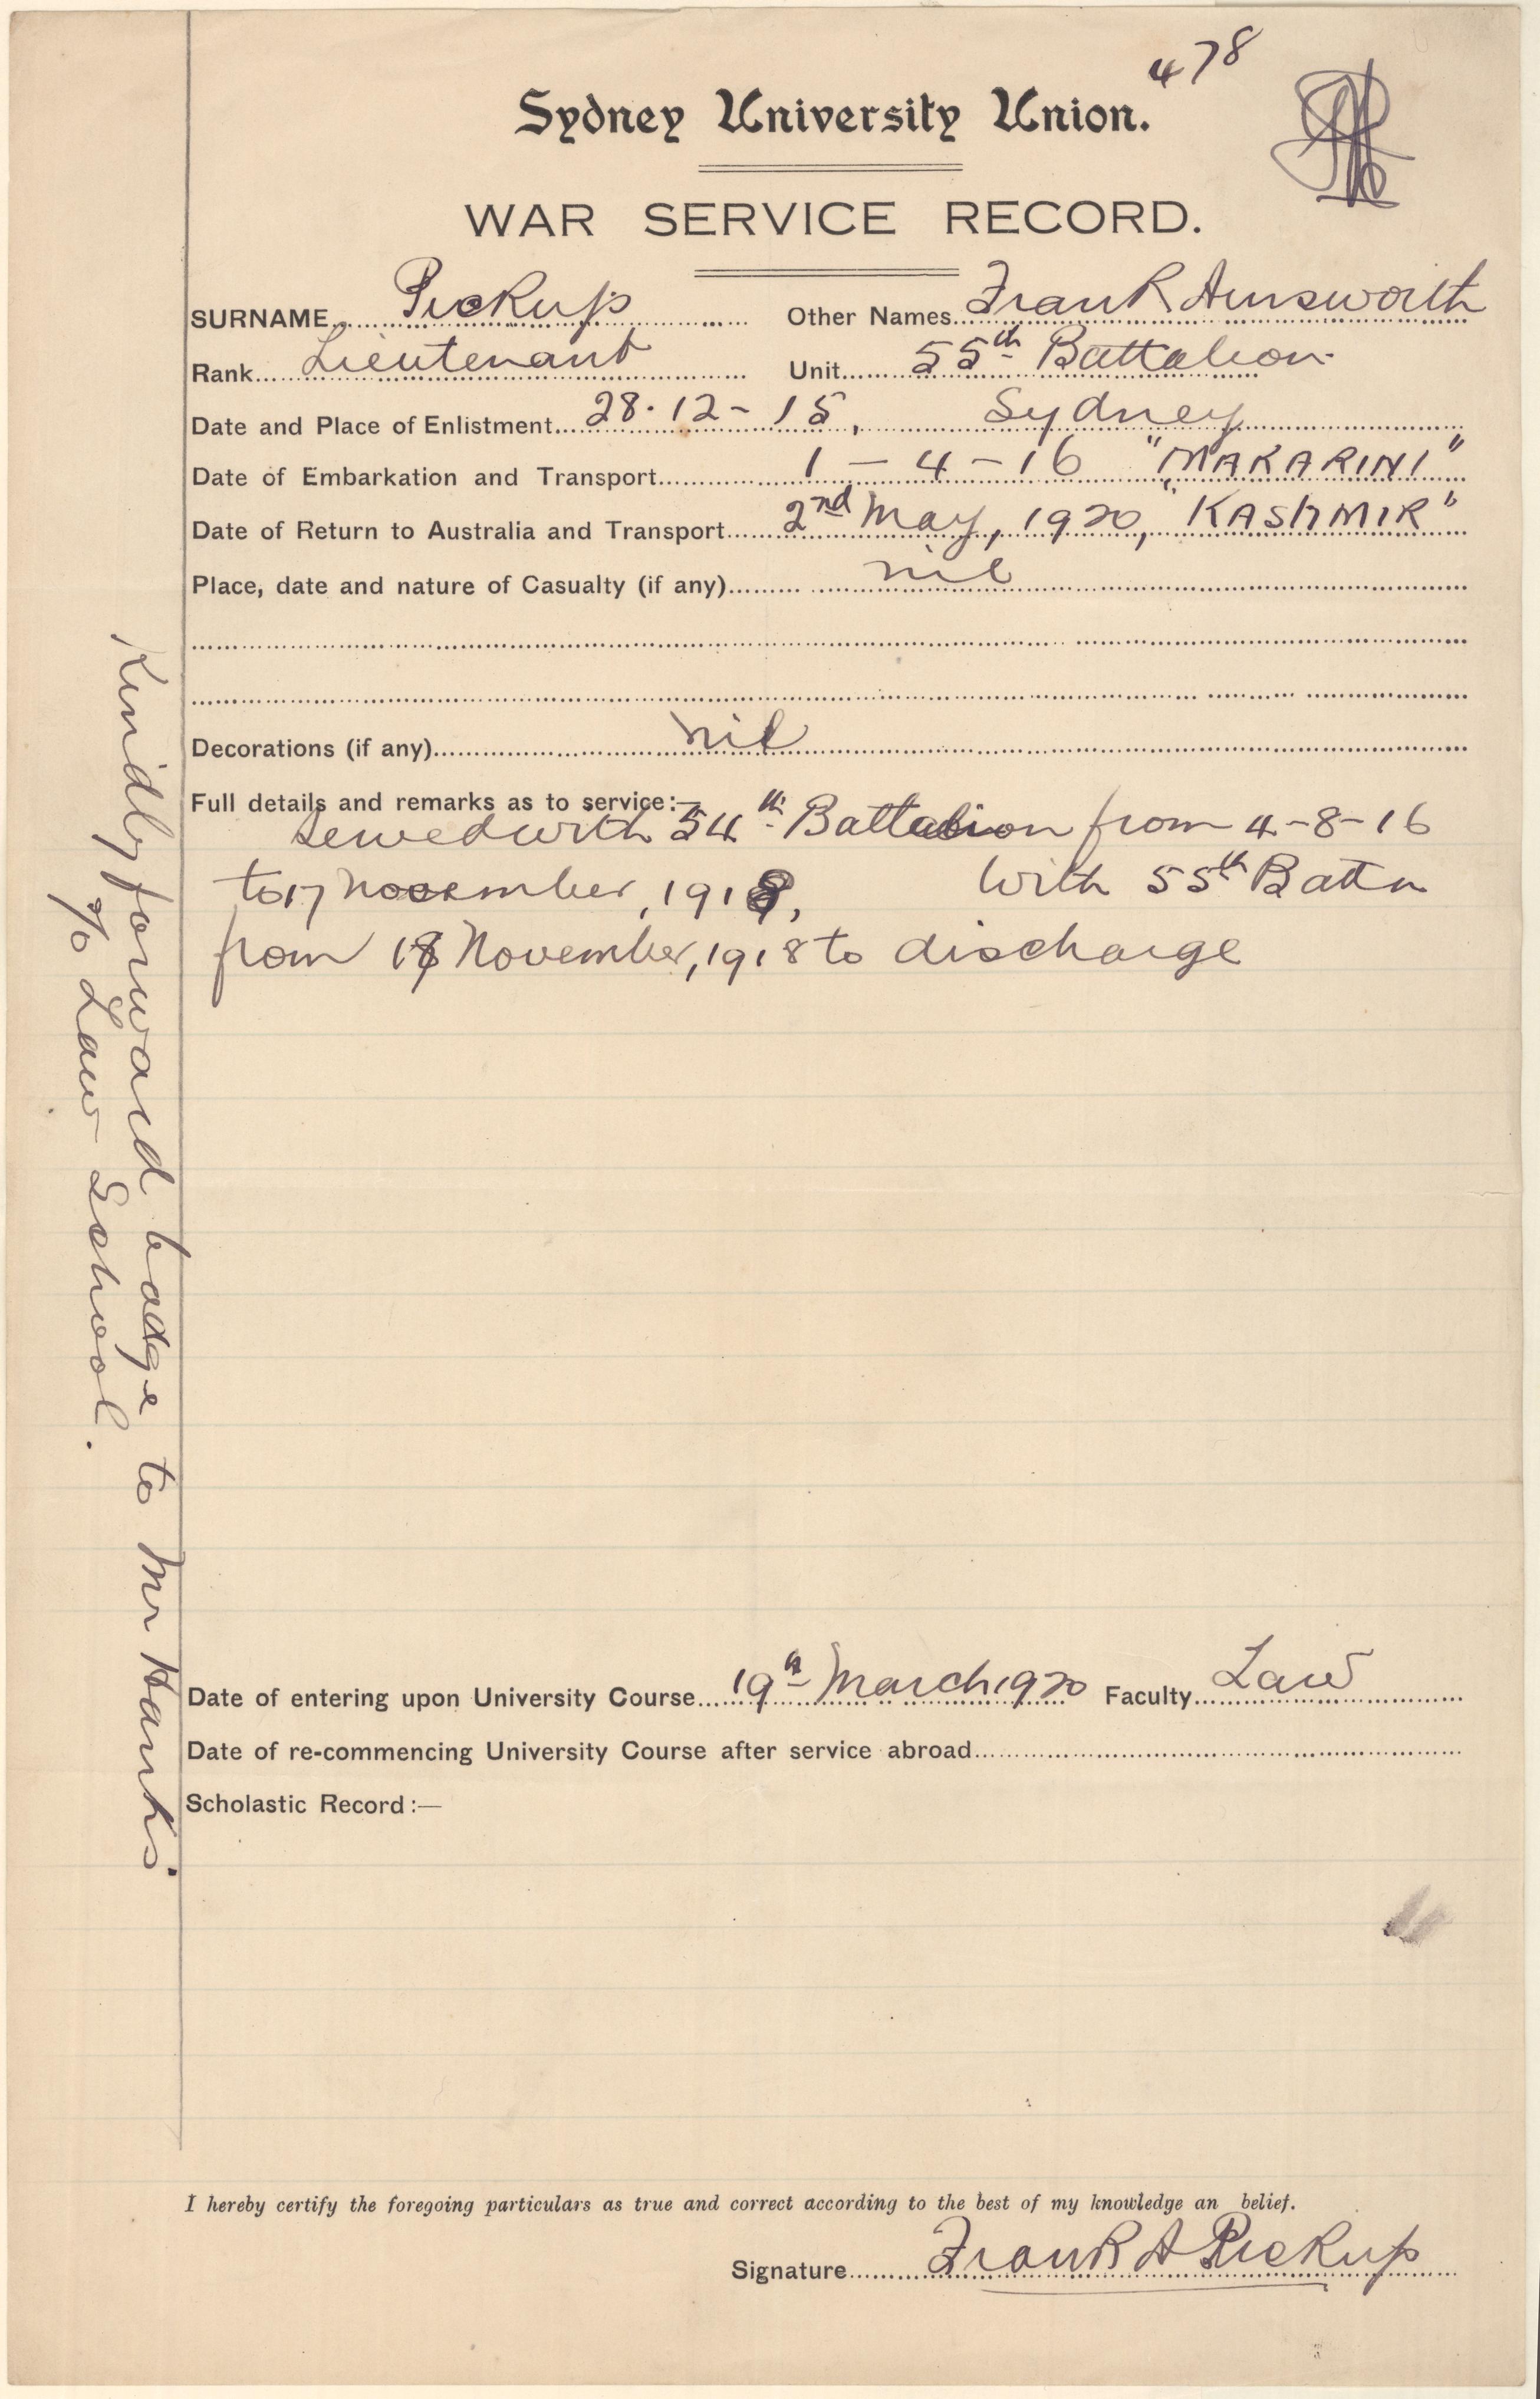 478
Sydney University Union.
WAR SERVICE RECORD.
SURNAME Pickup Other Names Frank Ainsworth
Rank Lieutenant Unit 55th Battalion
Date and Place of Enlistment 28.12-15, Sydney
Date of Embarkation and Transport 1-4-16 "MAKARINI"
Date of Return to Australia and Transport 2nd May, 1920, "KASHMIR"
Place, date and nature of Casualty (if any) nil
Decorations (if any) nil
Full details and remarks as to service:—
served with 54th Battalion from 4-8-16
to 17 November, 1918, With 55th Battn
from 18 November, 1918 to discharge
Kindly forward badge to Mr Hanks.
c/o Law School.
Date of entering upon University Course 19th March 1920 Faculty Law
Date of re-commencing University Course after service abroad
Scholastic Record:—
I hereby certify the foregoing particulars as true and correct according to the best of my knowledge an belief.
Signature Frank A Pickup